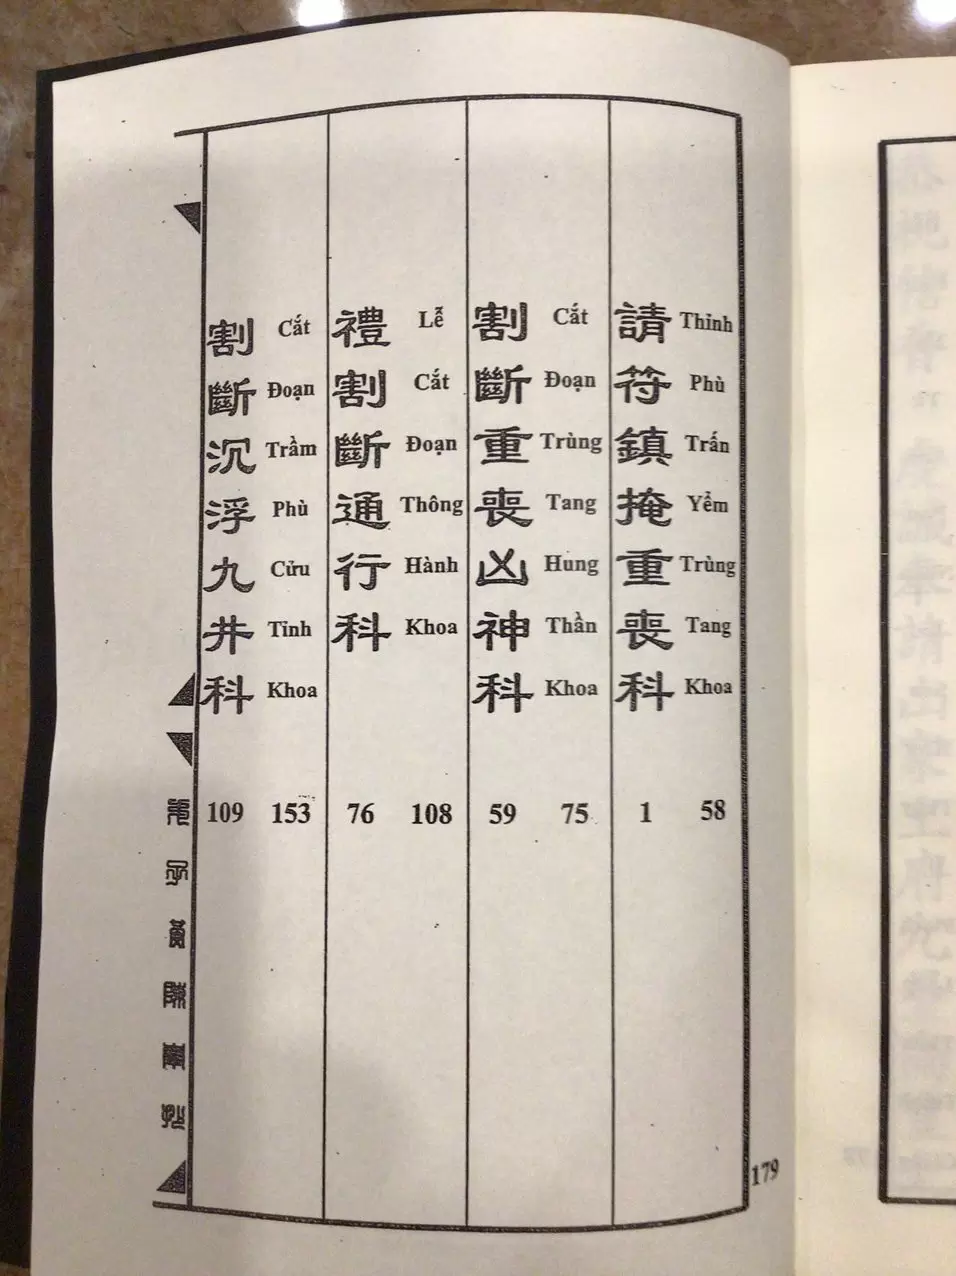 請符鎮掩重喪科
Thỉnh Phù Trấn Yểm Trùng Tang Khoa
1 58
割斷重喪凶神科
Cắt Đoạn Trùng Tang Hung Thần Khoa
59 75
禮割斷通行科
Lễ Cắt Đoạn Thông Hành Khoa
76 108
割斷沉浮九井科
Cắt Đoạn Trầm Phù Cửu Tỉnh Khoa
109 153
179